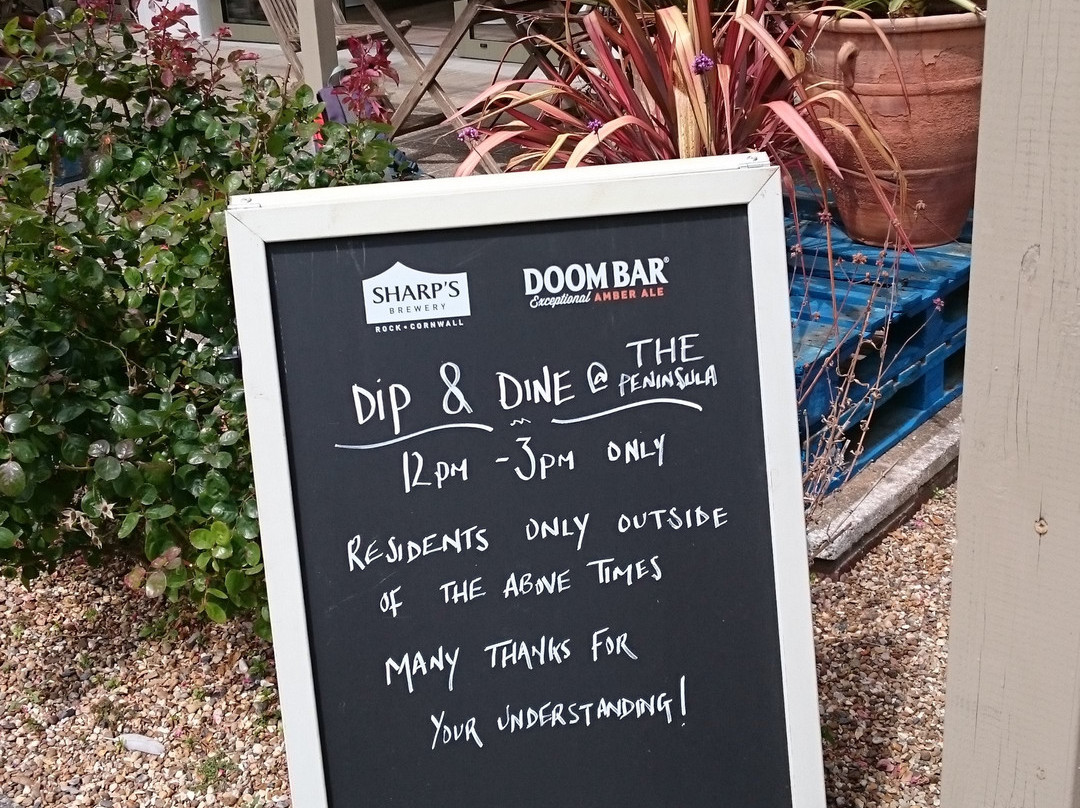 SHARP'S
BREWERY
ROCK • CORNWALL
DOOM BAR®
Exceptional AMBER ALE
Dip & DINE @ THE PENINSULA
12pm - 3pm ONLY
RESIDENTS ONLY OUTSIDE
OF THE ABOVE TIMES
MANY THANKS FOR
YOUR UNDERSTANDING!